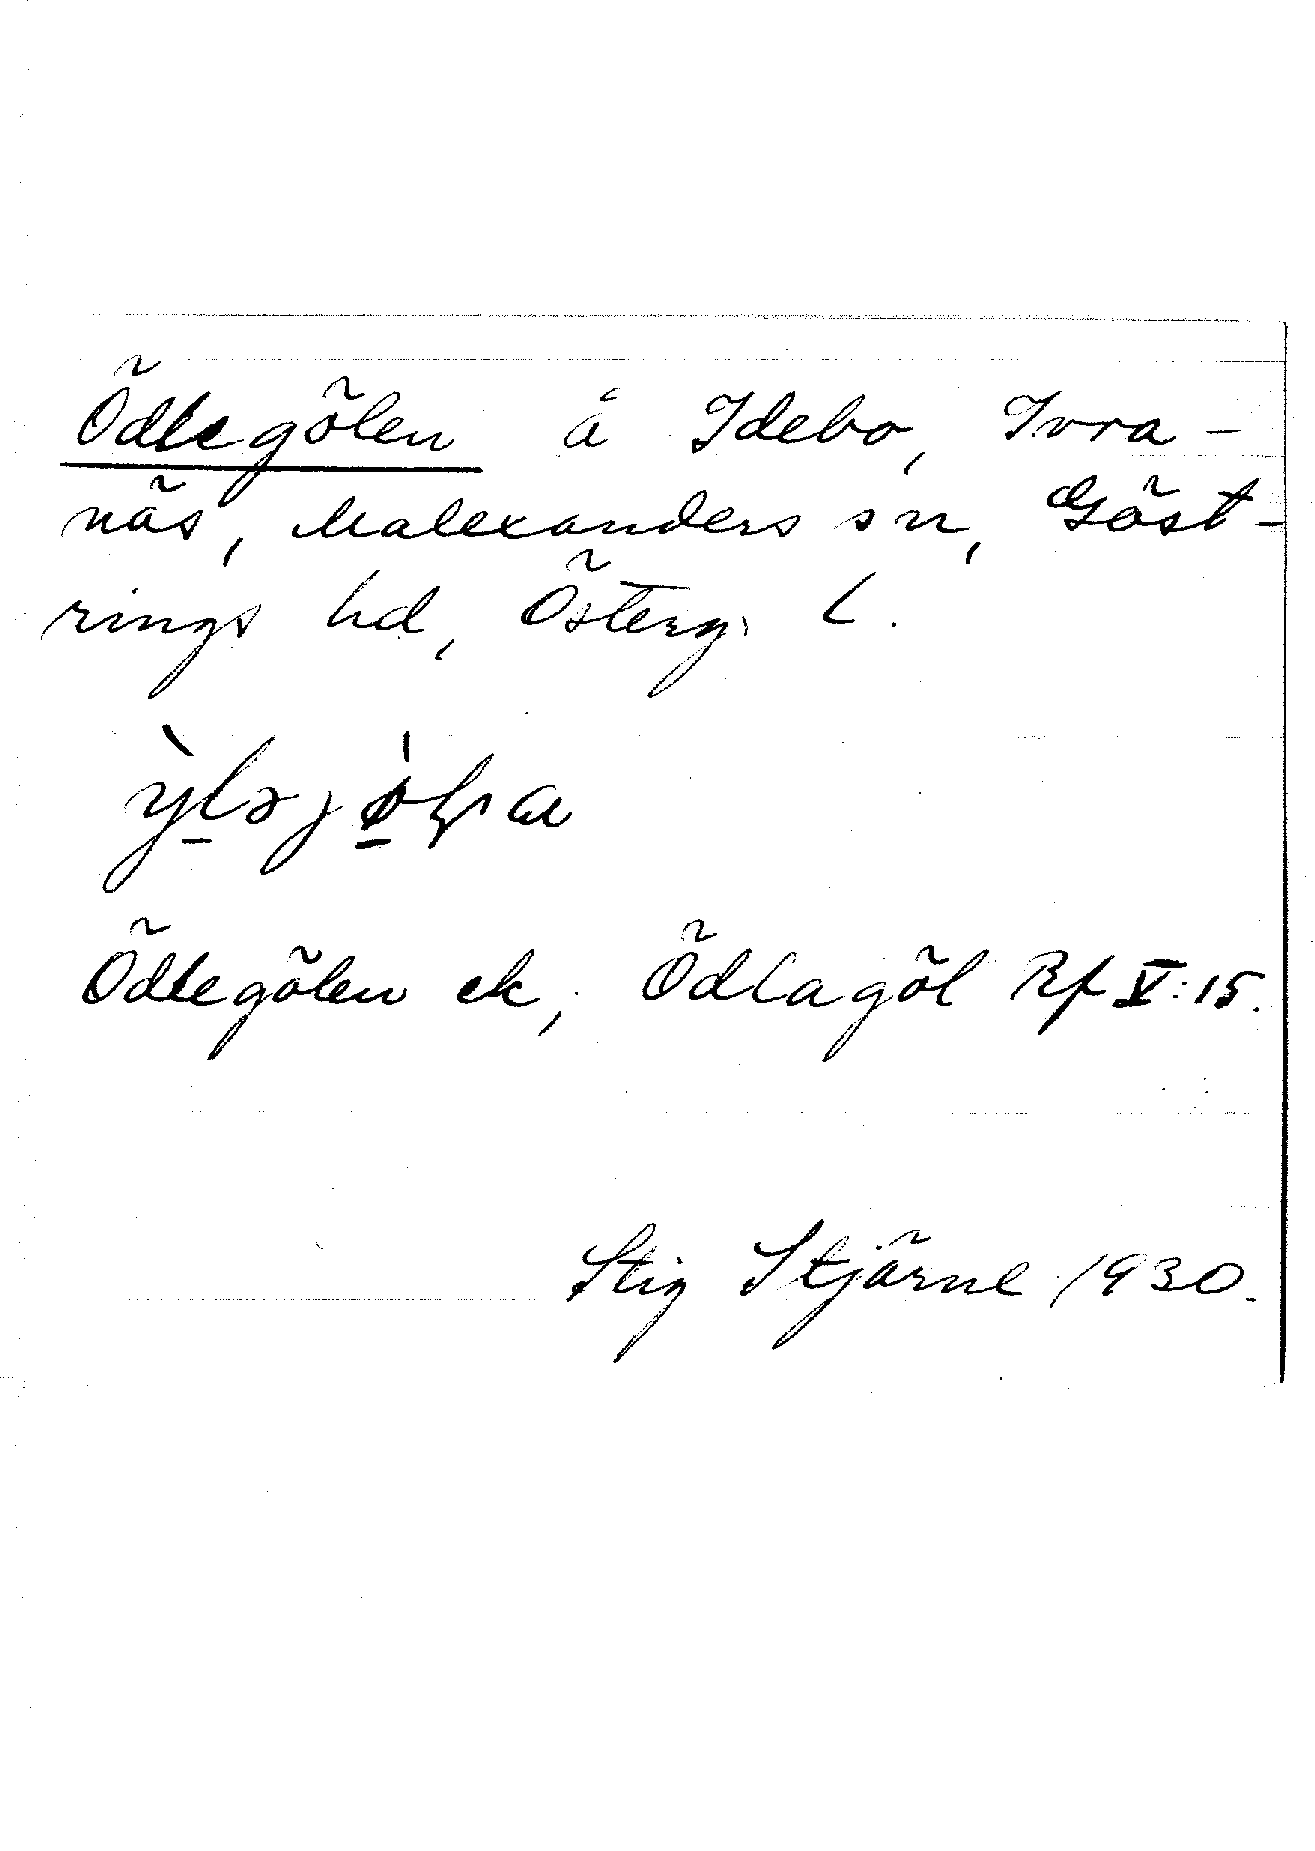 Ödlegölen å Idebo, Ivra-
näs, Malexanders sn, Göst-
rings hd, Österg. L.
Ödlegölen ek, Ödlagöl Rf V:15.
Stig Stjärne 1930.